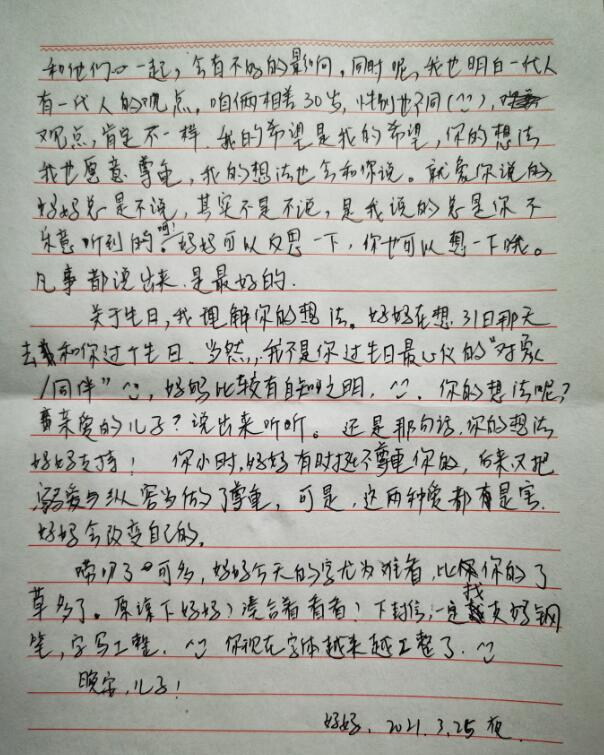 和他们一起，会有不好的影响，同时呢，我也明白一代人
有一代人的观点，咱俩相差30岁，性别也不同(^^)，
观点，肯定不一样。我的希望是我的希望，你的想法
我也愿意尊重，我的想法也会和你说。就象你说的
妈妈总是不说，其实不是不说，是我说的总是你不
乐意听到的。呵！妈妈可以反思一下，你也可以想一下哦。
凡事都说出来是最好的.
关于生日，我理解你的想法。妈妈在想31日那天
去和你过个生日.当然，我不是你过生日最心仪的“对象
/同伴”^^，妈妈比较有自知之明，^^. 你的想法呢？
亲爱的儿子？说出来听听。还是那句话，你的想法
妈妈支持！你小时，妈妈有时挺不尊重你的，后来又把
溺爱与纵容当做了尊重，可是，这两种爱都有是害.
妈妈会改变自己的。
唠叨了可多，妈妈今天的字尤为难看，比你的了
草多了。原谅下妈妈？凑合着看看！下封信，一定找支好钢
笔，字写工整.^^ 你现在字体越来越工整了.^^
晚安，儿子！
妈妈. 2021.3.25 夜.